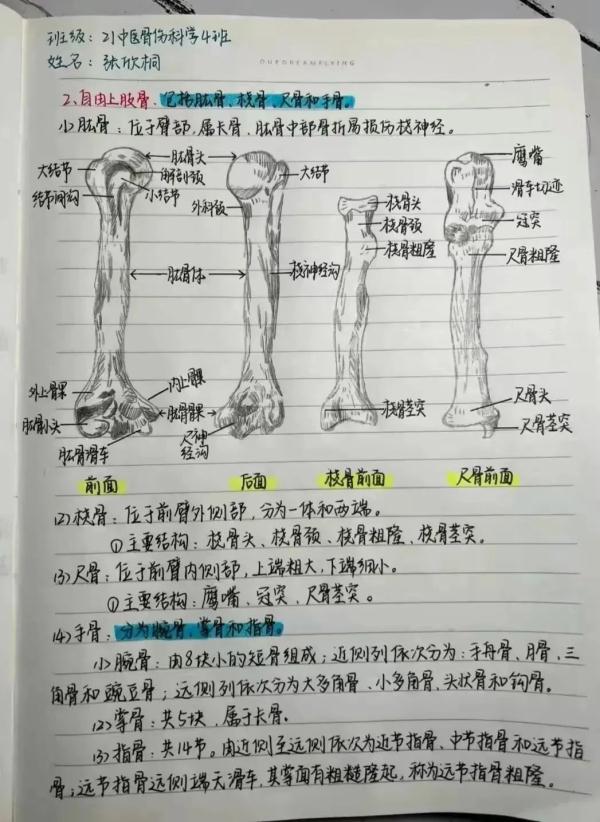 班级：21中医骨伤科学4班
姓名：张欣桐
OUFDREAMFLYING
2、自由上肢骨：包括肱骨、桡骨、尺骨和手骨。
(1) 肱骨：位于臂部，属长骨，肱骨中部骨折易损伤桡神经。
大结节
结节间沟
肱骨头
解剖颈
小结节
外科颈
大结节
桡骨头
桡骨颈
桡骨粗隆
鹰嘴
滑车切迹
冠突
尺骨粗隆
肱骨体
桡神经沟
外上髁
肱骨小头
肱骨滑车
内上髁
肱骨髁
尺神
经沟
桡骨茎突
尺骨头
尺骨茎突
前面
后面
桡骨前面
尺骨前面
(2) 桡骨：位于前臂外侧部，分为一体和两端。
①主要结构：桡骨头、桡骨颈、桡骨粗隆、桡骨茎突。
(3) 尺骨：位于前臂内侧部，上端粗大，下端细小。
①主要结构：鹰嘴、冠突、尺骨茎突。
(4) 手骨：分为腕骨、掌骨和指骨。
(1) 腕骨：由8块小的短骨组成；近侧列依次分为：手舟骨、月骨、三
角骨和豌豆骨；远侧列依次分为大多角骨、小多角骨、头状骨和钩骨。
(2) 掌骨：共5块，属于长骨。
(3) 指骨：共14节。由近侧至远侧依次为近节指骨、中节指骨和远节指
骨；远节指骨远侧端无滑车，其掌面有粗糙隆起，称为远节指骨粗隆。